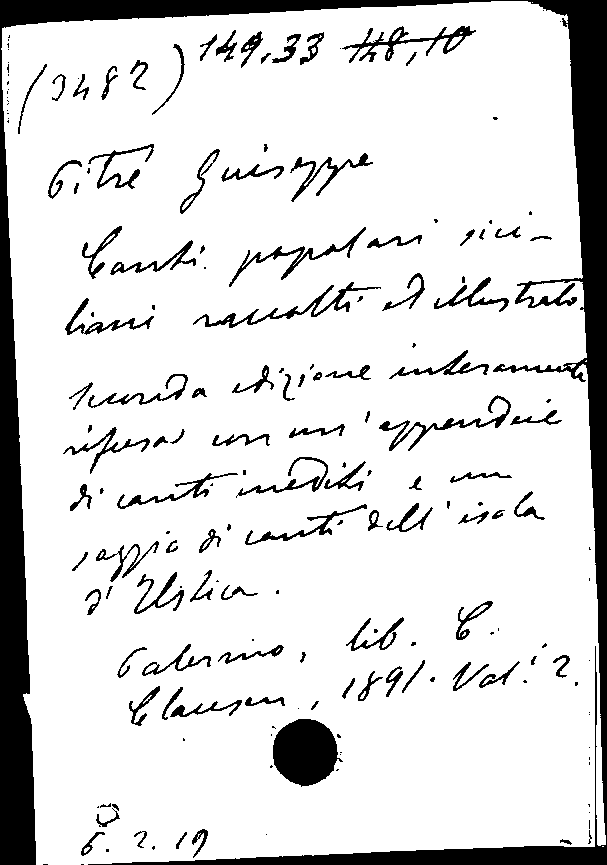 (3482) 149.33 148,10
Pitrè Giuseppe
Canti popolari sici-
liani raccolti ed illustrati.
Seconda edizione interamente
rifusa con un'appendice
di canti inediti e un
saggio di canti dell'isola
d'Ustica.
Palermo, lib. C.
Clausen, 1891. Vol.i 2.
6. 2. 19